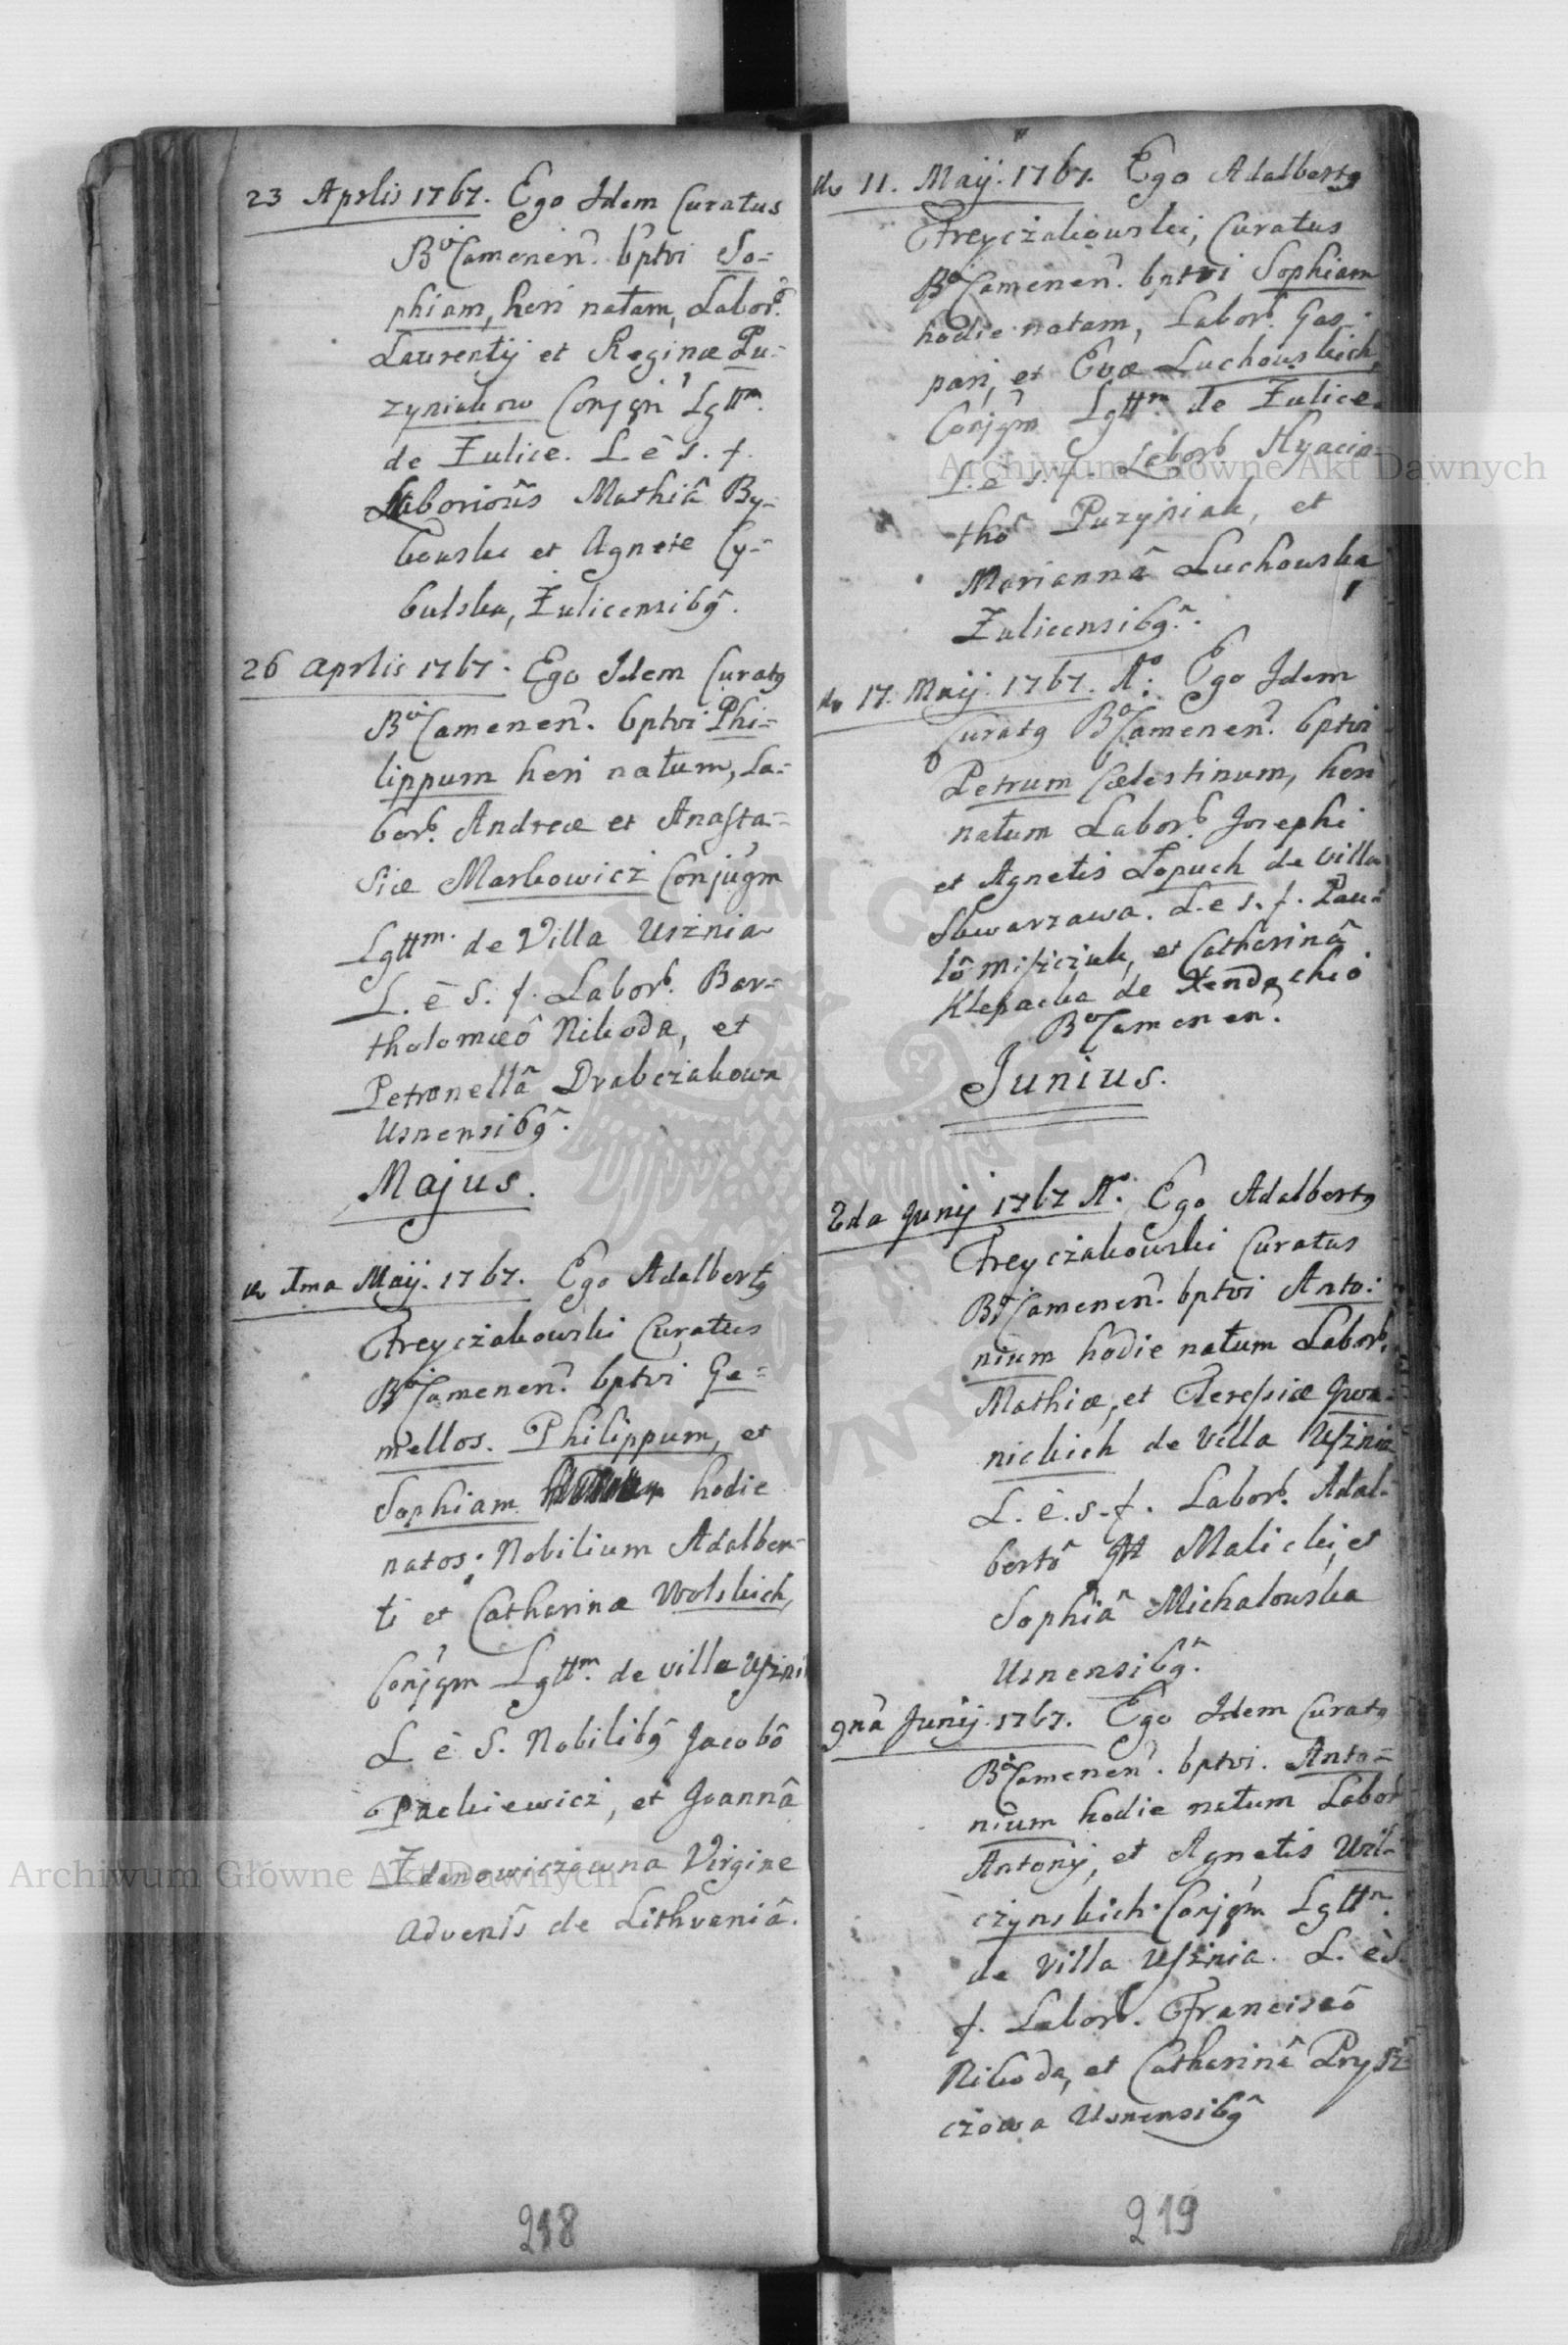 23 Aprlis 1767. Ego Idem Curatus
BoCamenen. bptvi So=
phiam, heri natam, Labor.
Laurentij et Reginæ Pu=
zyniakow Conjgm Lgttm.
de Żulice. L è S. f.
Laboriosîs Mathiâ By=
kowski et Agnete Cy=
bulska, Żulicensibq.
26 Aprlis 1767. Ego Idem Curatq
BoCamenen. bptvi Phi=
lippum heri natum, La=
borb. Andreæ et Anasta=
siæ Markowicz Conjugm
Lgttm. de Villa Usznia
L. è S. f. Laborb. Bar=
tholomæô Nikoda, et
Petronellâ Drabczakowa
Usnensibq.
Majus.
de 1ma Maij. 1767. Ego Adalbertq
Freyczakowski Curatus
BoCamenen. bptvi Ge=
mellos. Philippum, et
Sophiam hodie
natos; Nobilium Adalber=
ti et Catharinæ Wolskich,
Conjgm Lgttm. de villa Uszni
L è S. Nobilibq Jacobô
Packiewicz, et Joannâ
Zdanowiczowna Virgine
advenîs de Lithvaniâ.
218
de 11. Maij. 1767. Ego Adalbertq
Freyczakowski, Curatus
BoCamenen. bptvi Sophiam
hodie natam, Labor. Gas=
pari, et Evæ Luchowskich,
Conjgm Lgttm de Żulice.
L. è S. f. Laborb Hyacin=
thô Puzyniak, et
Mariannâ Luchowska,
Żulicensibq.
de 17. Maij. 1767. Ao: Ego Idem
Curatq BoCamenen. bptvi
Petrum Cælestinum, heri
natum Laborb. Josephi
et Agnetis Łopuch de Villa
Skwarzawa. L. è S. f. Pau=
lô Misiczuk, et Catharinâ
Klepacka de
BoCamenen.
Junius.
2da Junij 1767 Ao. Ego Adalbertq
Freyczakowski Curatus
BoCamenen. bptvi Anto:
nium hodie natum Laborb.
Mathiæ, et Teressiæ Iwa=
nickich de Villa Usznia
L. è. S. f. Laborb. Adal=
bertô Malicki, et
Sophiâ Michalowska
Usnensibq.
9nâ Junij. 1767. Ego Idem Curatq
BoCamenen. bptvi. Anto=
nium hodie natum Labor
Antonij, et Agnetis Wil=
czynskich. Conjgm Lgttm.
de Villa Usznia. L. è S.
f. Laborb. Franciscô
Nikoda, et Catharinâ Prysz
czowa Usnensibq
219
Archiwum Główne Akt Dawnych
Archiwum Główne Akt Dawnych